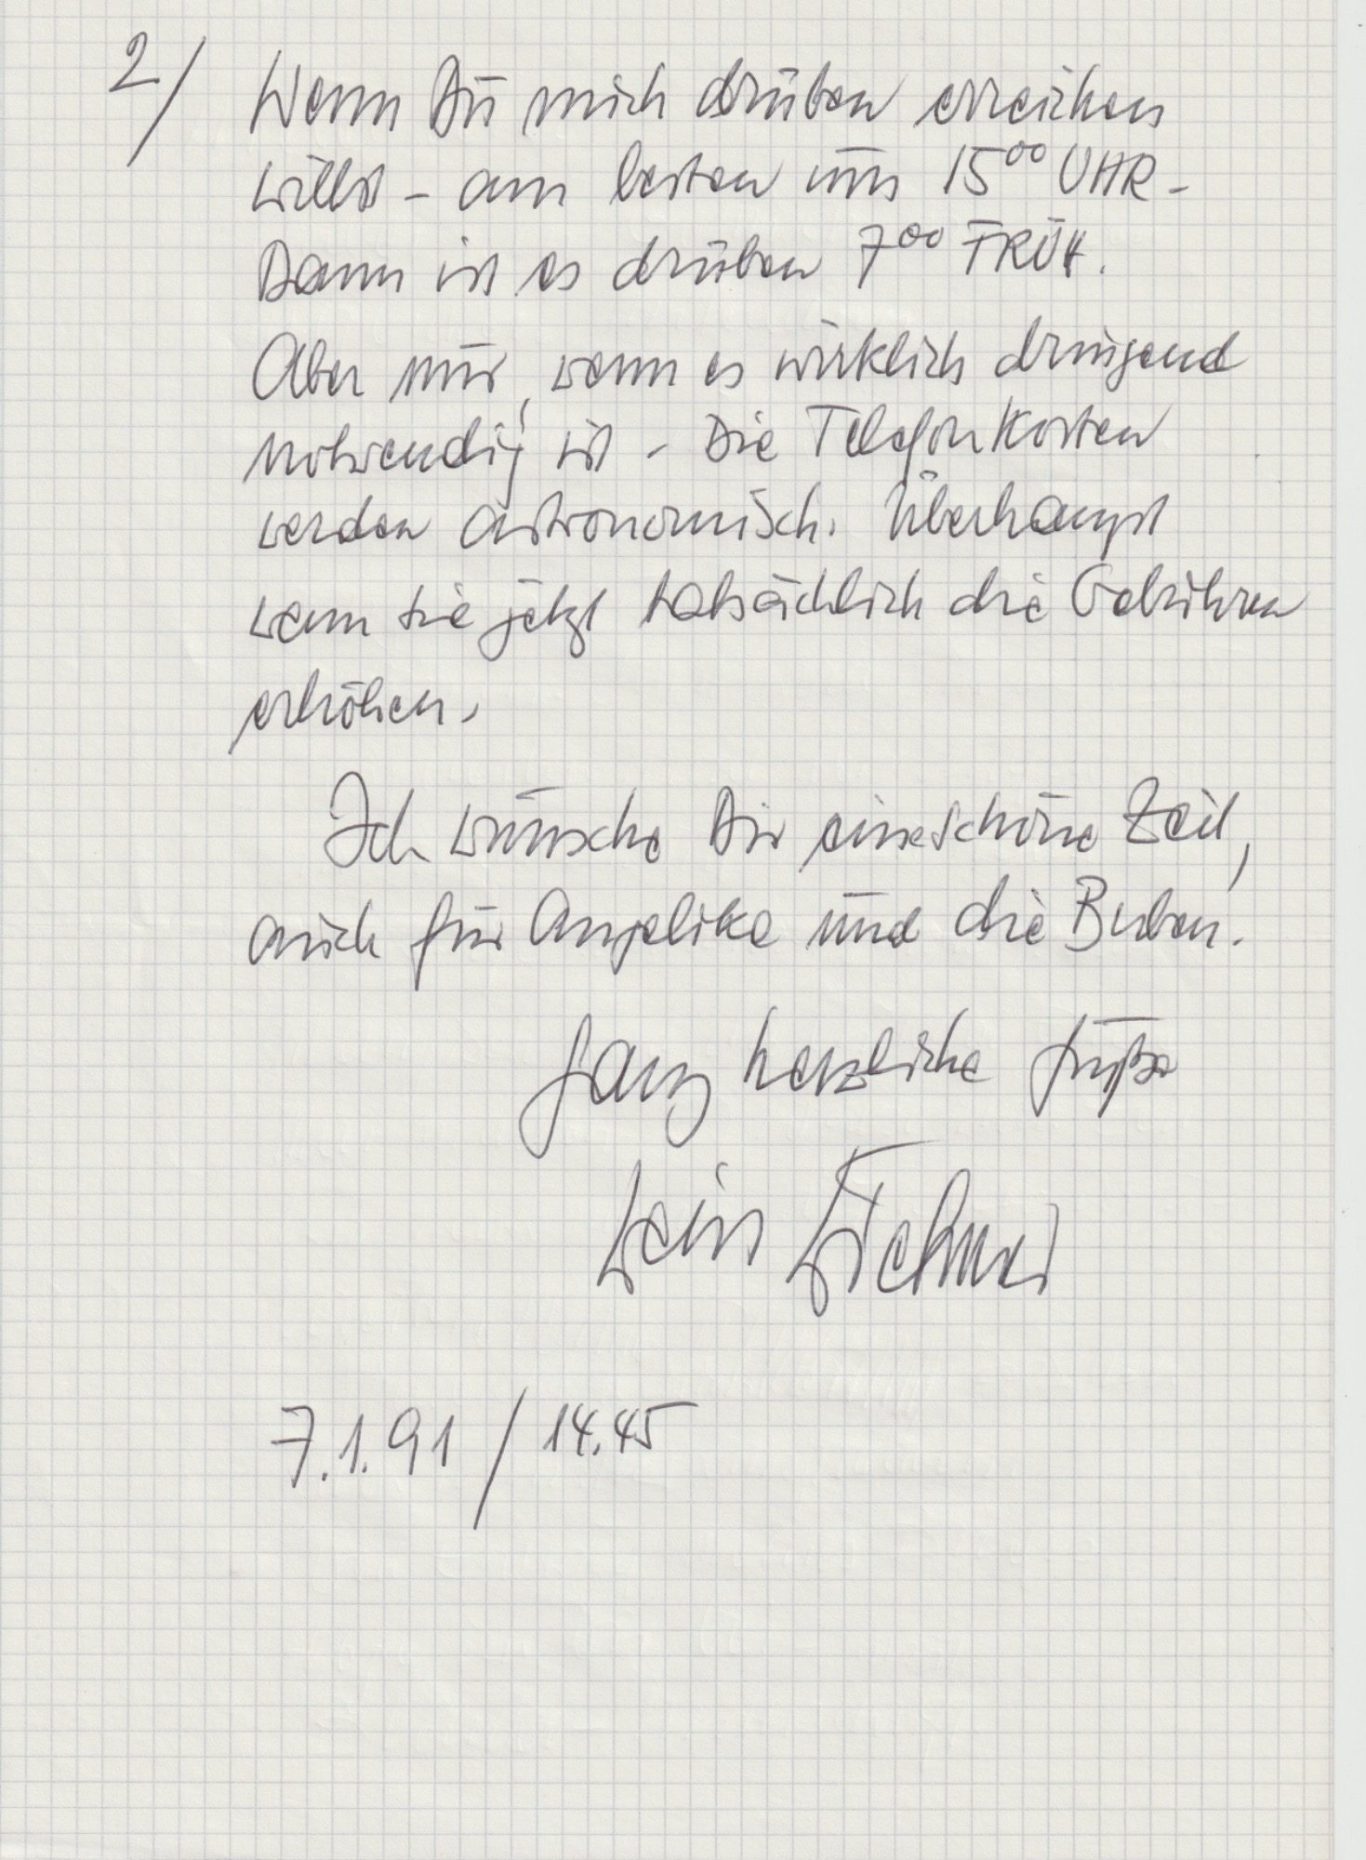 2/
Wenn Du mich drüben erreichen
willst - am besten um 15⁰⁰ UHR -
Dann ist es drüben 7⁰⁰ FRÜH.
Aber nur, wenn es wirklich dringend
notwendig ist - Die Telefonkosten
werden astronomisch. Überhaupt
wenn sie jetzt tatsächlich die Gebühren
erhöhen.
Ich wünsche Dir eine schöne Zeit,
auch für Angelika und die Buben.
Ganz herzliche Grüße
Dein
7.1.91 / 14.45